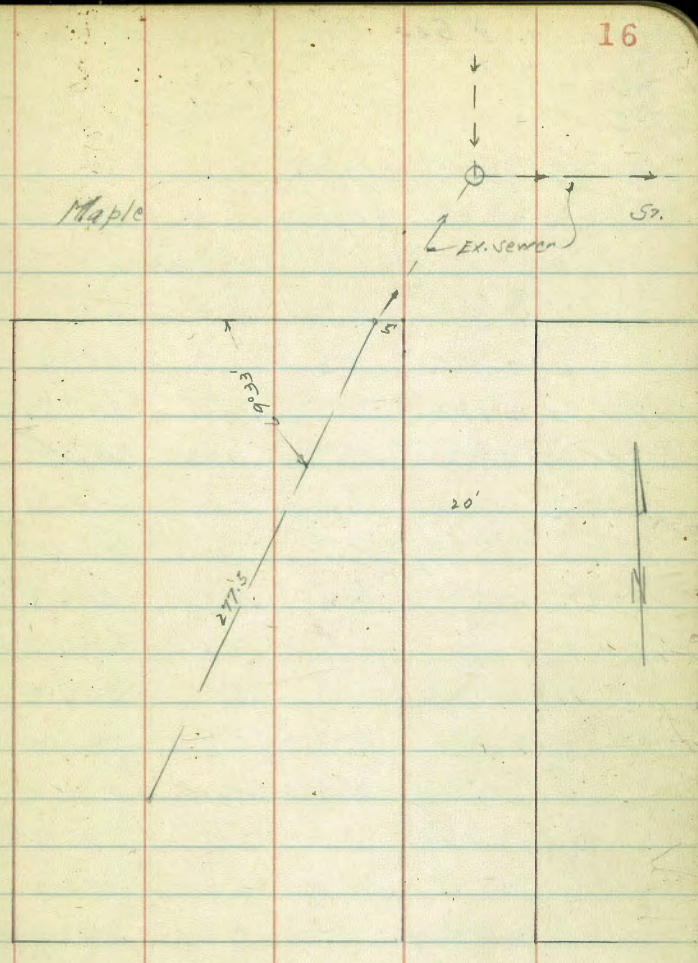 16
Maple
St.
Ex. sewer
5
9°33'
20'
277.5
N